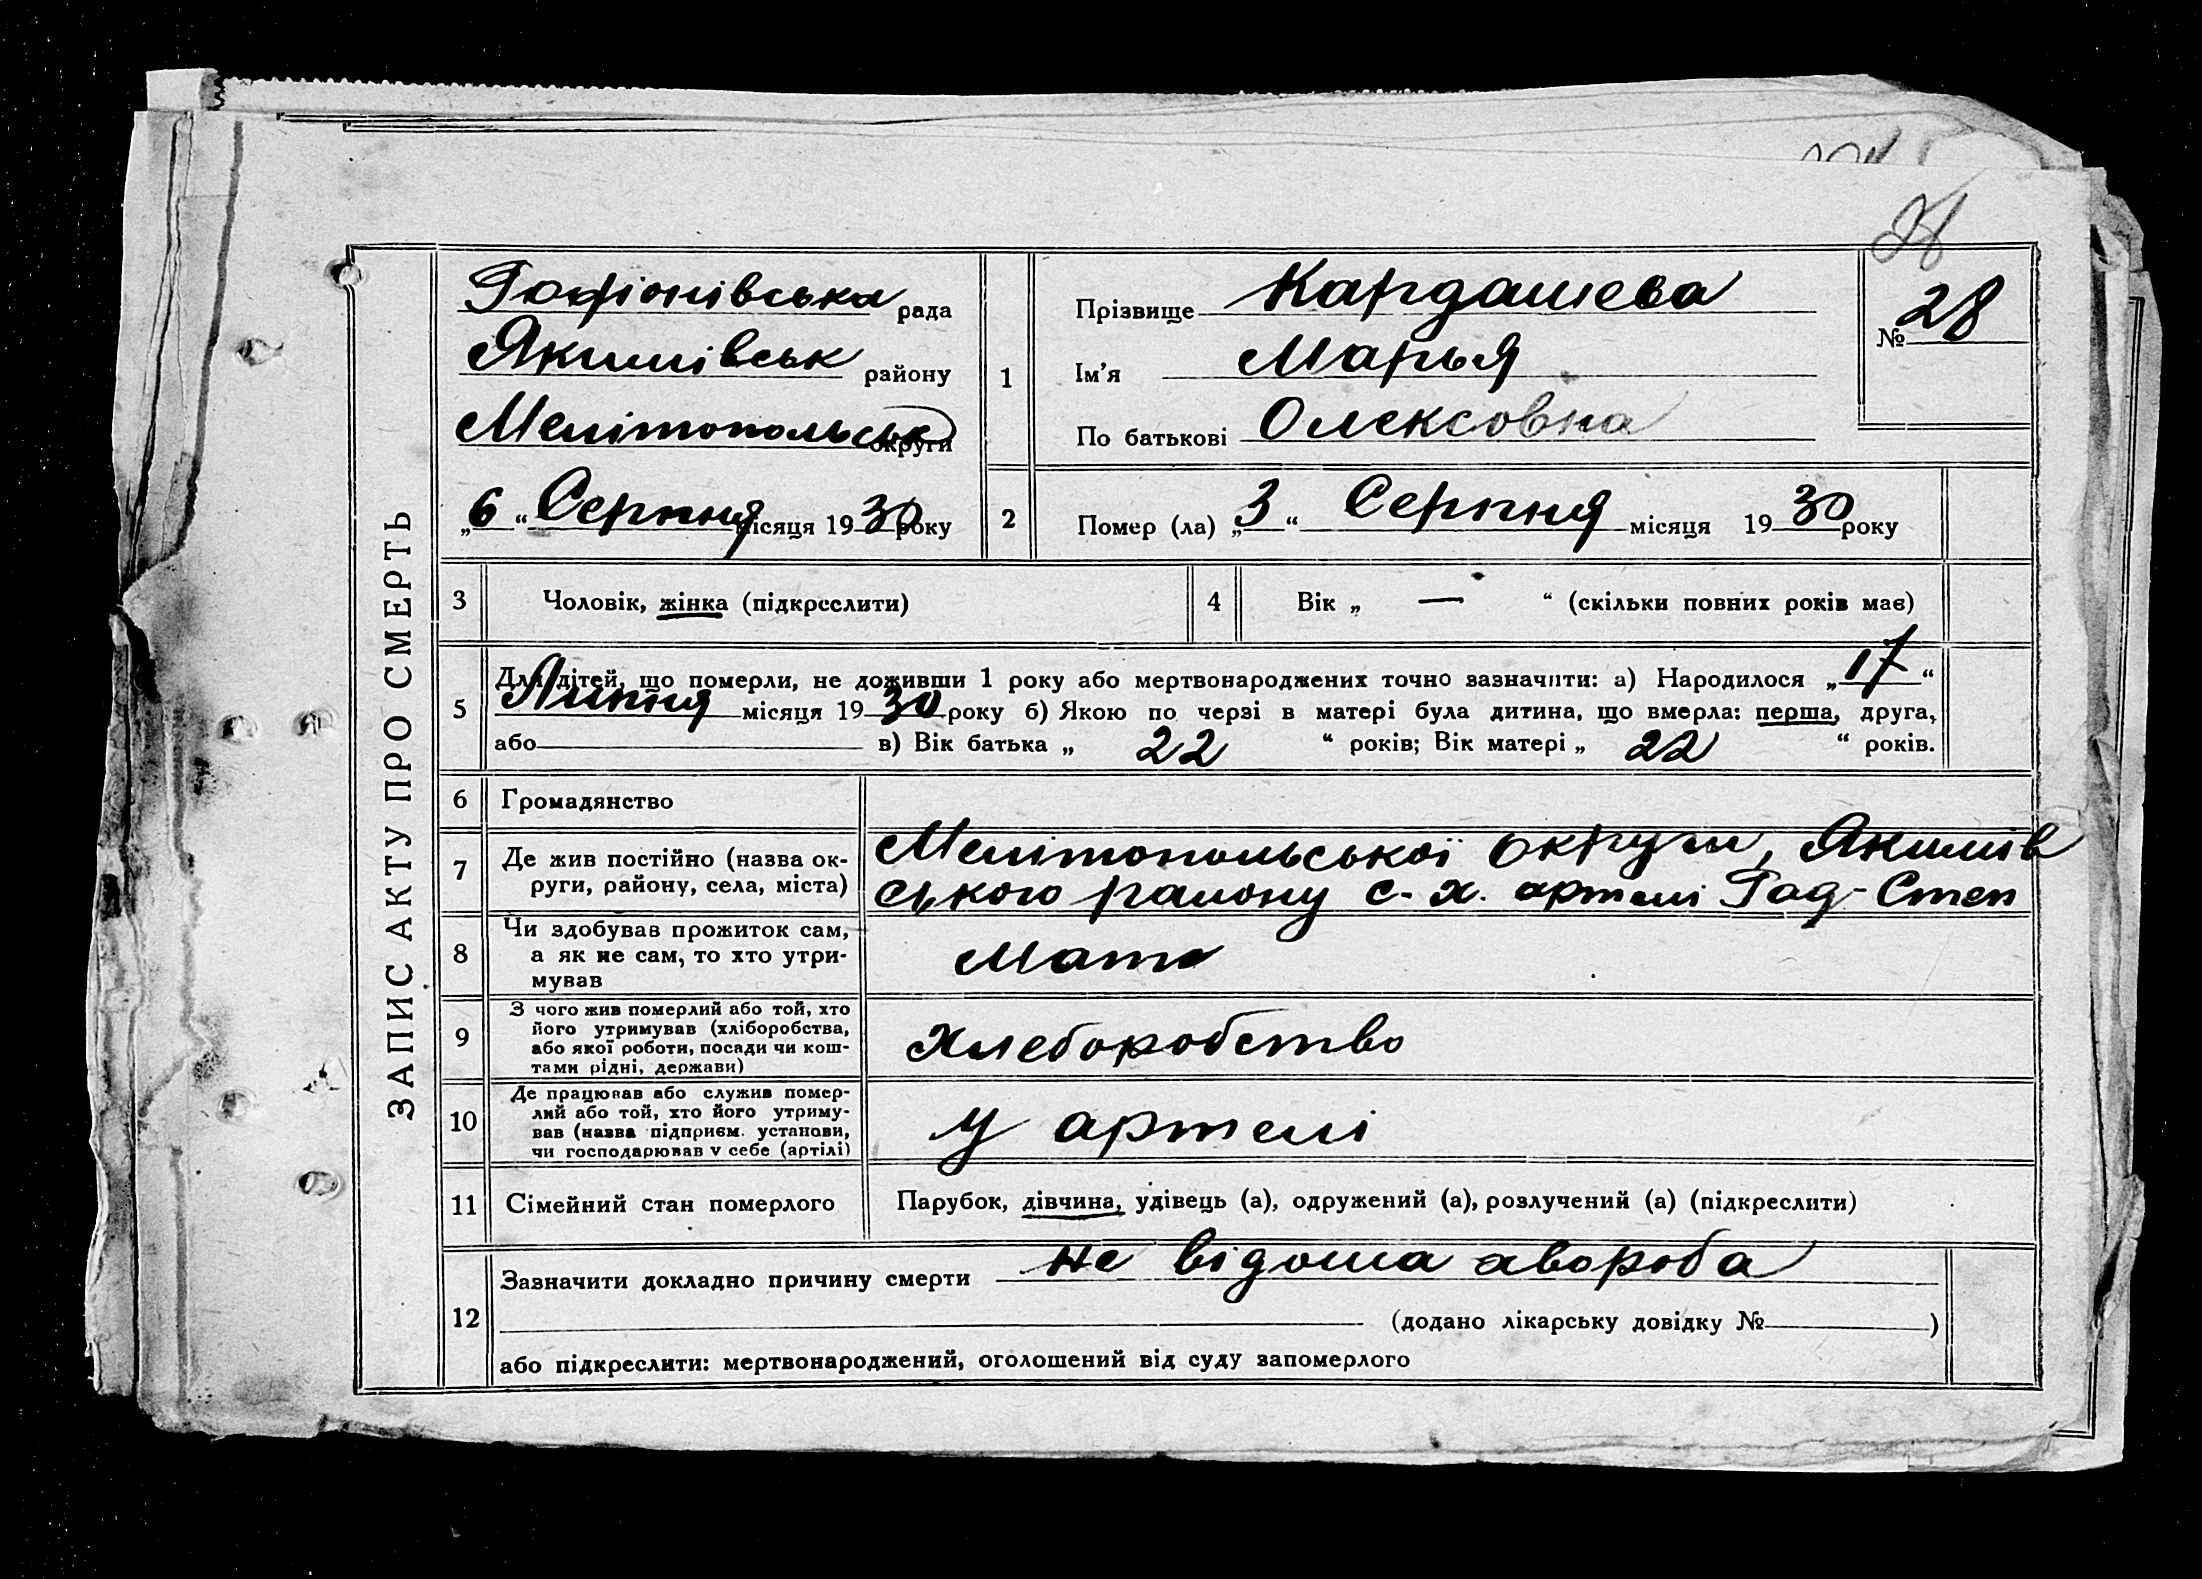 ЗАПИС АКТУ ПРО СМЕРТЬ
Гофіонівська рада
Якимівськ району
Мелітопольськ округи
„6“ Серпня місяця 1930 року
1
Прізвище Кардашева
Ім'я Марья
По батькові Олексовна
№ 28
2
Помер (ла) „3“ Серпня місяця 1930 року
3
Чоловік, жінка (підкреслити)
4
Вік „ — “ (скільки повних років має)
5
Для дітей, що померли, не доживши 1 року або мертвонароджених точно зазначити: а) Народилося „17“
Липня місяця 1930 року б) Якою по черзі в матері була дитина, що вмерла: перша, друга,
або в) Вік батька „ 22 “ років; Вік матері „ 22 “ років.
6
Громадянство
7
Де жив постійно (назва ок-
руги, району, села, міста)
Мелітопольської округи, Якимів
ського району с-х. артелі Гад-Степ
8
Чи здобував прожиток сам,
а як не сам, то хто утри-
мував
Мати
9
З чого жив померлий або той, хто
його утримував (хліборобства,
або якої роботи, посади чи кош-
тами рідні, держави)
Хлеборобство
10
Де працював або служив помер-
лий або той, хто його утриму-
вав (назва підприєм. установи,
чи господарював у себе (артілі)
У артелі
11
Сімейний стан померлого
Парубок, дівчина, удівець (а), одружений (а), розлучений (а) (підкреслити)
12
Зазначити докладно причину смерти не відома хвороба
(додано лікарську довідку № )
або підкреслити: мертвонароджений, оголошений від суду запомерлого